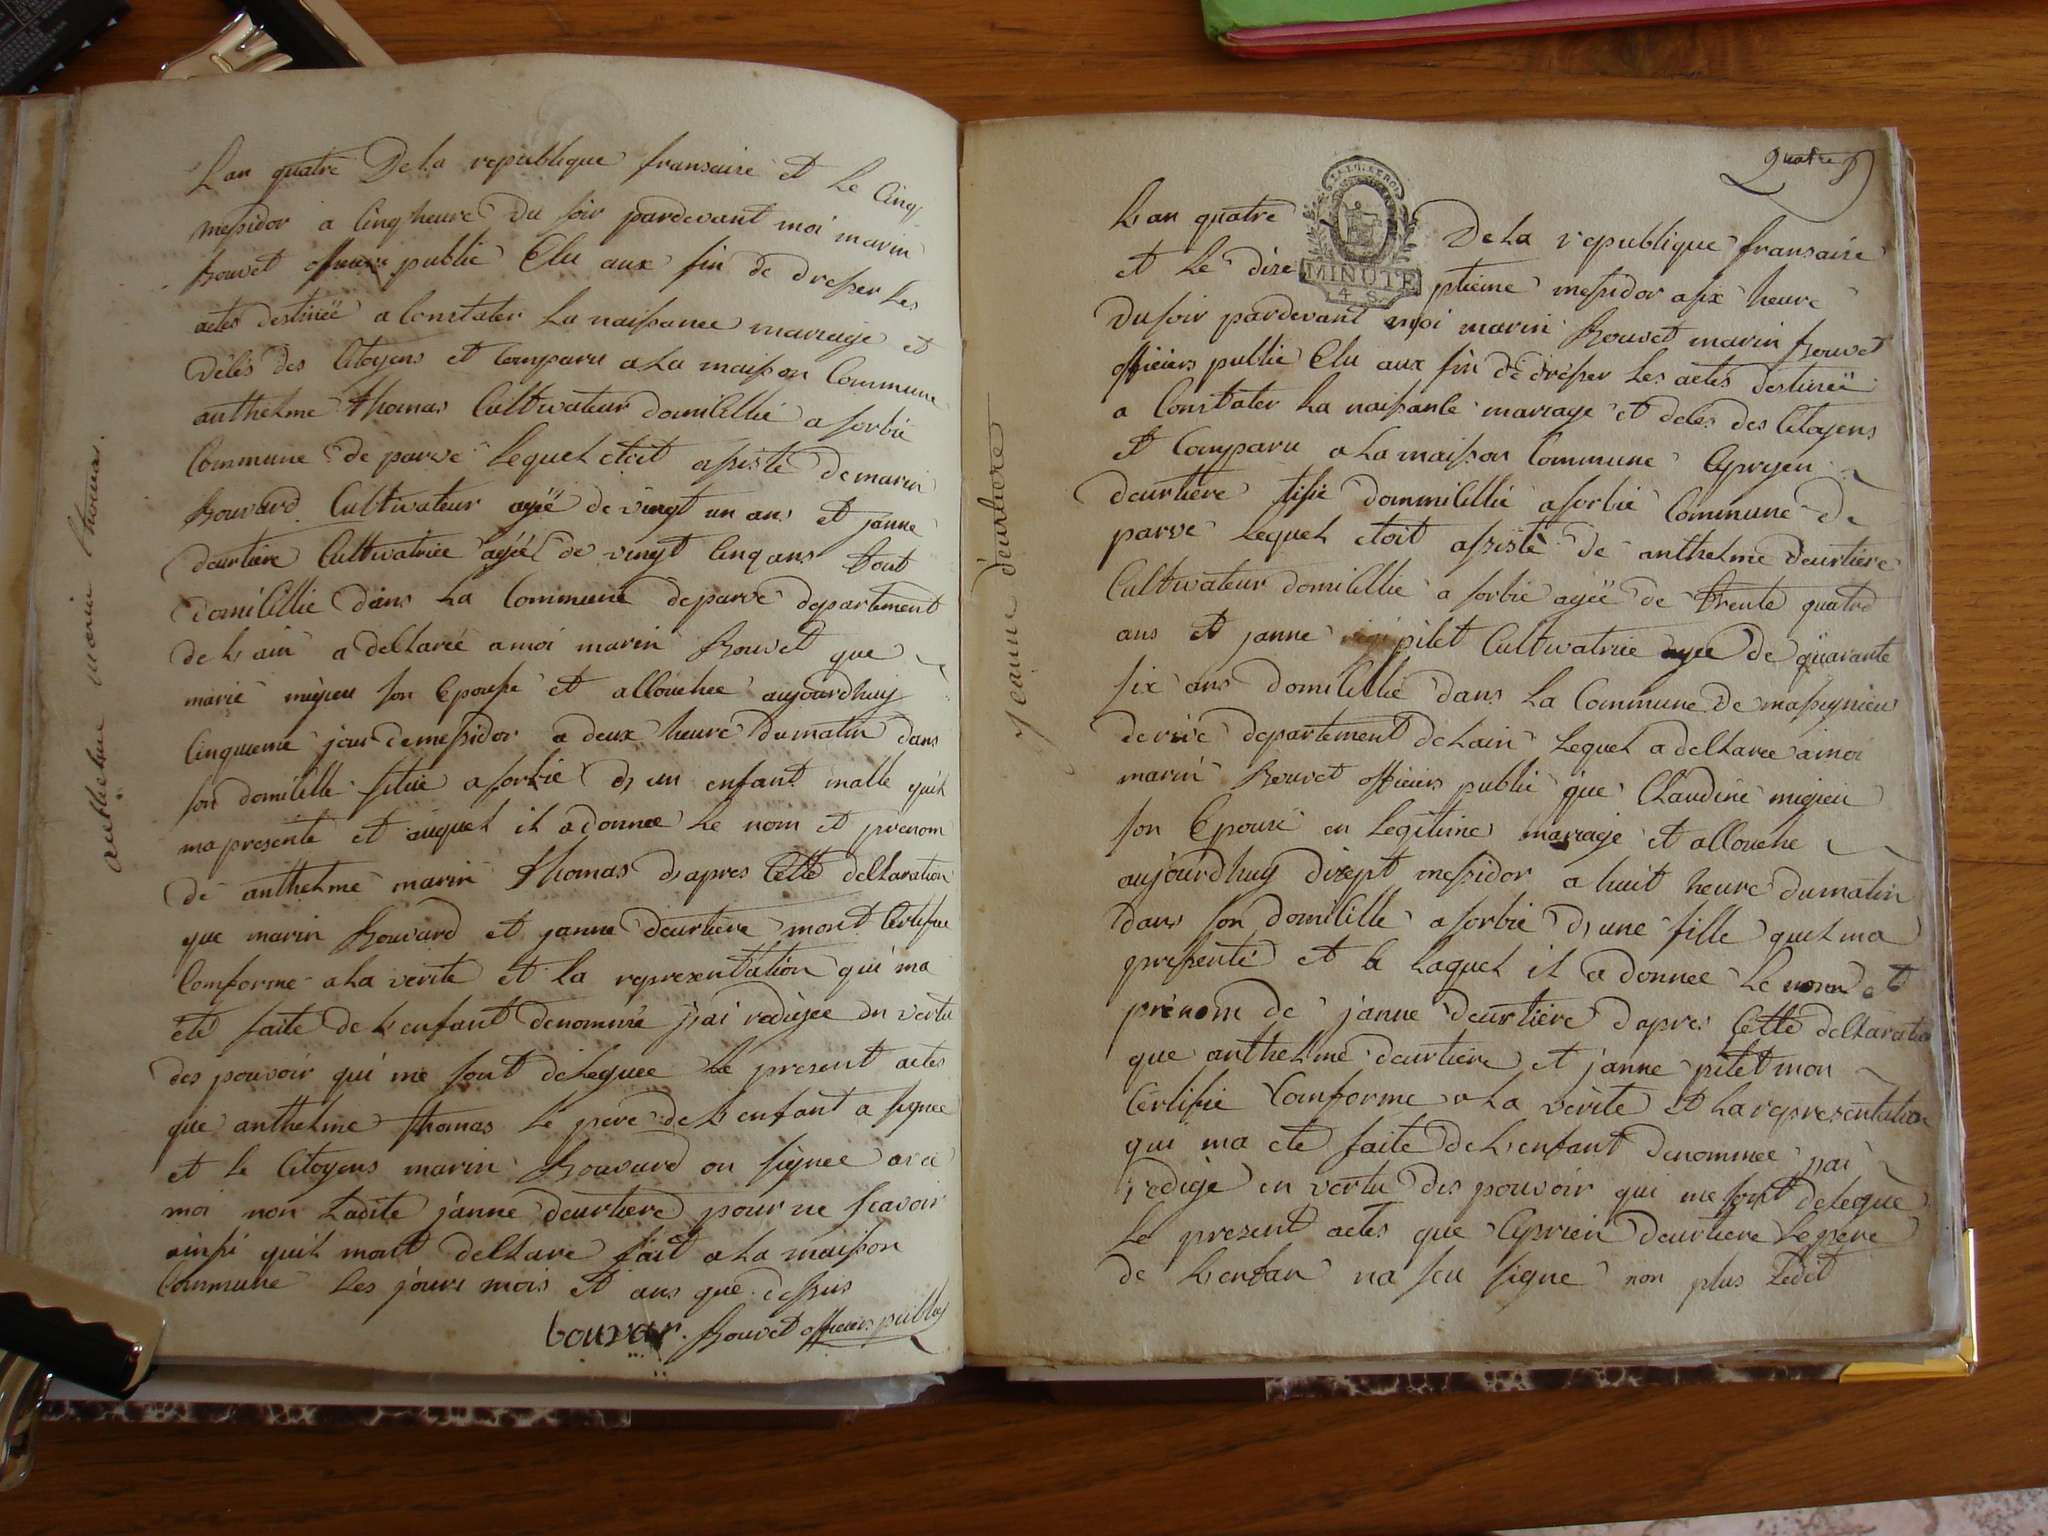 anthelme marin thomas.
Lan quatre De La republique fransaise et Le Cinq
messidor a Cinq heure Du soir pardevant moi marin
Bouvet officiers public Elu aux fin de dresser Les
actes destinëë a Constater La naissance mariage et
délés des Citoyens et Comparu a La maison Commune
anthelme thomas Cultivateur domicillié a sorbie
Commune de parve Lequel etoit assisté de marin
Bouvard Cultivateur agëë de vingt un ans et janne
deurtiere Cultivatrice agéé de vingt Cinq ans tout
domicillie dans La Commune de parve departement
de L ain a declaréé a moi marin Bouvet que
marie migieu son Epouse et allouchee aujourdhuy
Cinquieme jour de messidor a deux heure du matin dans
son domicille situe a sorbie d, un enfant malle quil
ma presente et auquel il a donnee Le nom et prenom
de anthelme marin thomas d'apres Cette declaration
que marin Bouvard et janne deurtiere mont Certifie
Comforme a La verite et la representation qui ma
été faite de L enfant denommé j'ai redigee en vertu
des pouvoir qui me sont deleguee Le present actes
que anthelme thomas Le pere de L enfant a signee
et le Citoyens marin Bouvard on signee avec
moi non Ladite janne deurtiere pour ne scavoir
ainsi quil mont declare fait a La maison
Commune Les jours mois et ans que dessus
bouvar. Bouvet officiers public
Quatre
Jeanne deurtiere
MINUTE
4. S.
Lan quatre De La republique fransaise
et Le dise ptieme messidor a six heure
Du soir pardevant moi marin Bouvet marin Bouvet
officiers public Elu aux fin de dresser Les actes destinëë
a Constater La naissance mariage et delés des Citoyens
et Comparu a La maison Commune Cypryen
deurtiere dommicillie a sorbie Commune de
parve Lequel etoit assisté de anthelme deurtiere
Cultivateur domicillie a sorbie agëë de trente quatre
ans et janne pilet Cultivatrice agee de quarante
six ans domicillié dans La Commune de massignieu
de rive departement de Lain Lequel a declaree a moi
marin Bouvet officiers public que Claudine migieu
son Epouse en Legitime mariage et allouche
aujourdhuy disept messidor a huit heure du matin
dans son domicille a sorbie d, une fille quel ma
presenté et a Laquel il a donnee Le nom et
prenom de janne deurtiere d'apres Cette declaration
que anthelme deurtiere et janne pilet mon
Certifie Comforme a La verite et La representation
qui ma ete faite de L enfant denommee jai
redige en vertu des pouvoir qui me sont delegue
Le present actes que Ciprien deurtiere Le pere
de L enfan na seu signe non plus Ledit